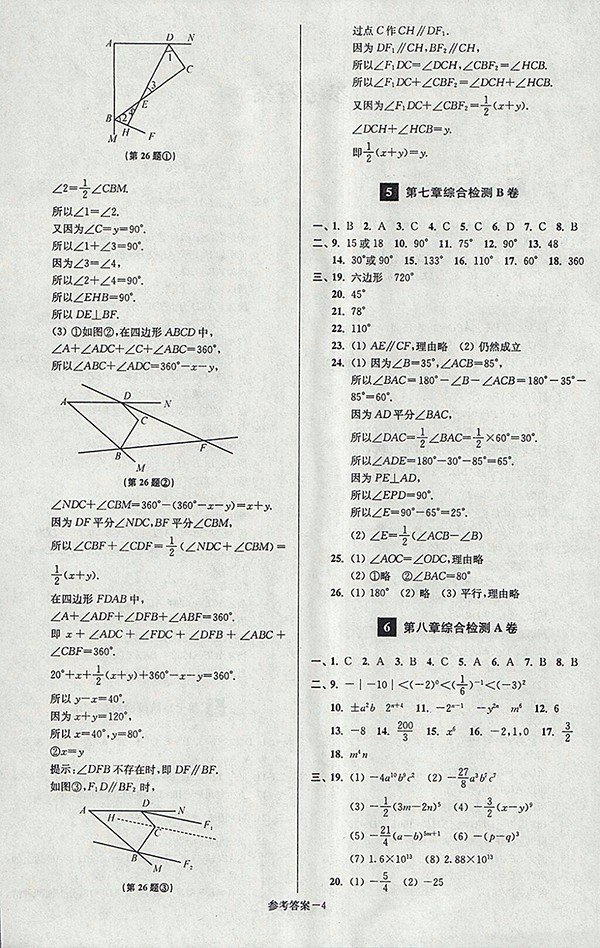 A D N
1
C
3
E
4
B 2
H
M F
(第 26 题①)
∠2=1/2∠CBM.
所以∠1=∠2.
又因为∠C=y=90°.
所以∠1+∠3=90°.
因为∠3=∠4,
所以∠2+∠4=90°.
所以∠EHB=90°.
所以 DE⊥BF.
(3) ①如图②,在四边形 ABCD 中,
∠A+∠ADC+∠C+∠ABC=360°,
所以∠ABC+∠ADC=360°-x-y,
A D N
C
B F
M
(第 26 题②)
∠NDC+∠CBM=360°-(360°-x-y)=x+y.
因为 DF 平分∠NDC,BF 平分∠CBM,
所以∠CBF+∠CDF=1/2(∠NDC+∠CBM)=
1/2(x+y).
在四边形 FDAB 中,
∠A+∠ADF+∠DFB+∠ABF=360°.
即 x+∠ADC+∠FDC+∠DFB+∠ABC+
∠CBF=360°.
20°+x+1/2(x+y)+360°-x-y=360°.
所以 y-x=40°.
因为 x+y=120°,
所以 x=40°,y=80°.
②x=y
提示:∠DFB 不存在时,即 DF∥BF.
如图③,F₁D∥BF₂ 时,
A D N
H C F₁
B F₂
M
(第 26 题③)
过点 C 作 CH∥DF₁.
因为 DF₁∥CH,BF₂∥CH,
所以∠F₁DC=∠DCH,∠CBF₂=∠HCB.
所以∠F₁DC+∠CBF₂=∠DCH+∠HCB.
又因为∠F₁DC+∠CBF₂=1/2(x+y).
∠DCH+∠HCB=y.
即1/2(x+y)=y.
5 第七章综合检测 B 卷
一、1. B 2. A 3. C 4. C 5. C 6. D 7. C 8. B
二、9. 15 或 18 10. 90° 11. 75° 12. 90° 13. 48
14. 30°或 90° 15. 133° 16. 110° 17. 60° 18. 360
三、19. 六边形 720°
20. 45°
21. 78°
22. 110°
23. (1) AE∥CF,理由略 (2) 仍然成立
24. (1) 因为∠B=35°,∠ACB=85°,
所以∠BAC=180°-∠B-∠ACB=180°-35°-
85°=60°.
因为 AD 平分∠BAC,
所以∠DAC=1/2∠BAC=1/2×60°=30°.
所以∠ADE=180°-30°-85°=65°.
因为 PE⊥AD,
所以∠EPD=90°.
所以∠E=90°-65°=25°.
(2) ∠E=1/2(∠ACB-∠B)
25. (1) ∠AOC=∠ODC,理由略
(2) ①略 ②∠BAC=80°
26. (1) 180° (2) 略 (3) 平行,理由略
6 第八章综合检测 A 卷
一、1. C 2. A 3. B 4. C 5. A 6. A 7. B 8. B
二、9. -|-10|<(-2)⁰<(1/6)⁻¹<(-3)²
10. ±a²b 2ⁿ⁺⁴ 11. -2ⁿ⁻¹ -y²ⁿ m⁶ 12. 6
13. -8 14. 200/3 15. x⁶ 16. -2,1,0 17. 3/2
18. m⁴n
三、19. (1) -4a¹⁰b⁹c² (2) -27/8a³b⁷c⁷
(3) -1/2(3m-2n)⁵ (4) -3/2(x-y)⁹
(5) -21/4(a-b)⁵ᵐ⁺¹ (6) -(p-q)³
(7) 1.6×10¹³ (8) 2.88×10¹³
20. (1) -5/4 (2) -25
参考答案-4